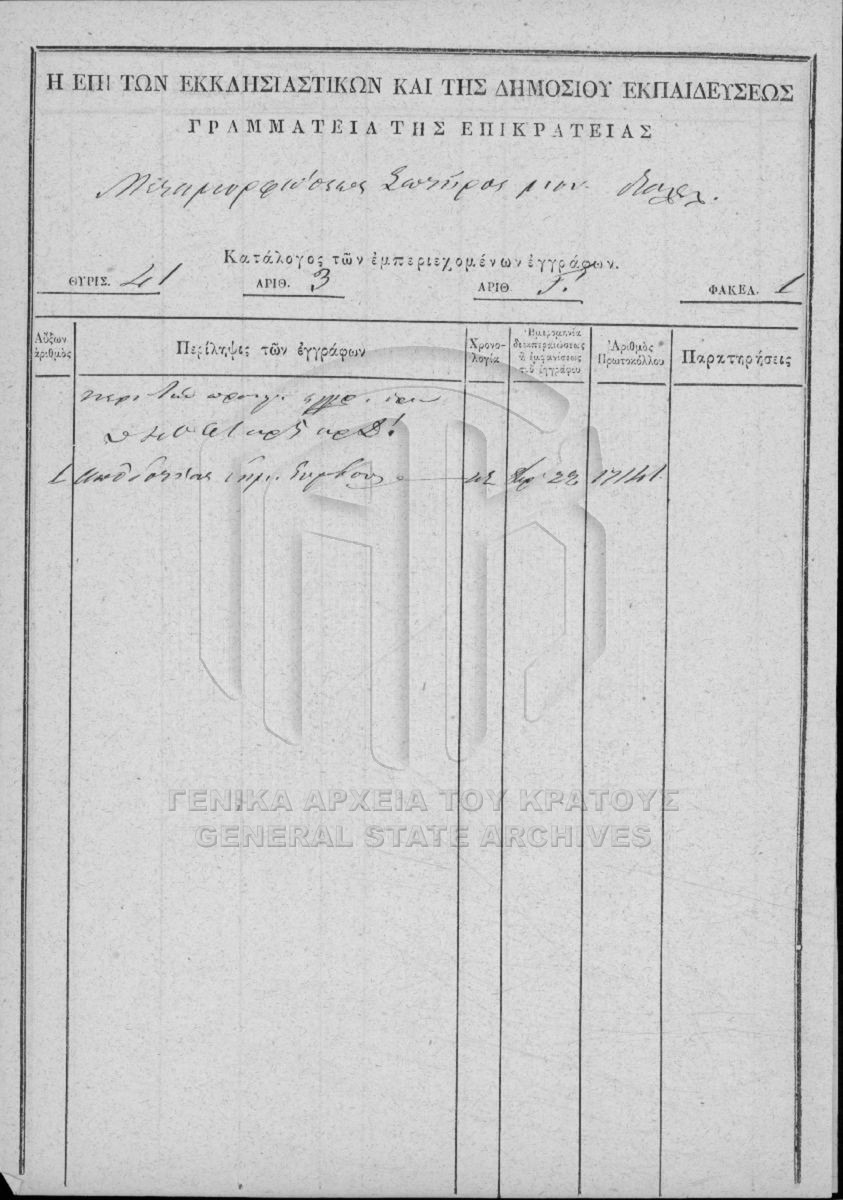 Η ΕΠΙ ΤΩΝ ΕΚΚΛΗΣΙΑΣΤΙΚΩΝ ΚΑΙ ΤΗΣ ΔΗΜΟΣΙΟΥ ΕΚΠΑΙΔΕΥΣΕΩΣ
ΓΡΑΜΜΑΤΕΙΑ ΤΗΣ ΕΠΙΚΡΑΤΕΙΑΣ
Μεταμορφώσεως Σωτήρος μον.
Κατάλογος τῶν ἐμπεριεχομένων ἐγγράφων.
ΘΥΡΙΣ. 41 ΑΡΙΘ. 3 ΑΡΙΘ. ΦΑΚΕΛ. 1
Αὔξων ἀριθμὸς Περίληψις τῶν ἐγγράφων Χρονολογία Ἡμερομηνία διεκπεραιώσεως ἢ ἐμφανίσεως τοῦ ἐγγράφου Ἀριθμὸς Πρωτοκόλλου Παρατηρήσεις
περὶ τῶν
1 22 17141
ΓΕΝΙΚΑ ΑΡΧΕΙΑ ΤΟΥ ΚΡΑΤΟΥΣ
GENERAL STATE ARCHIVES